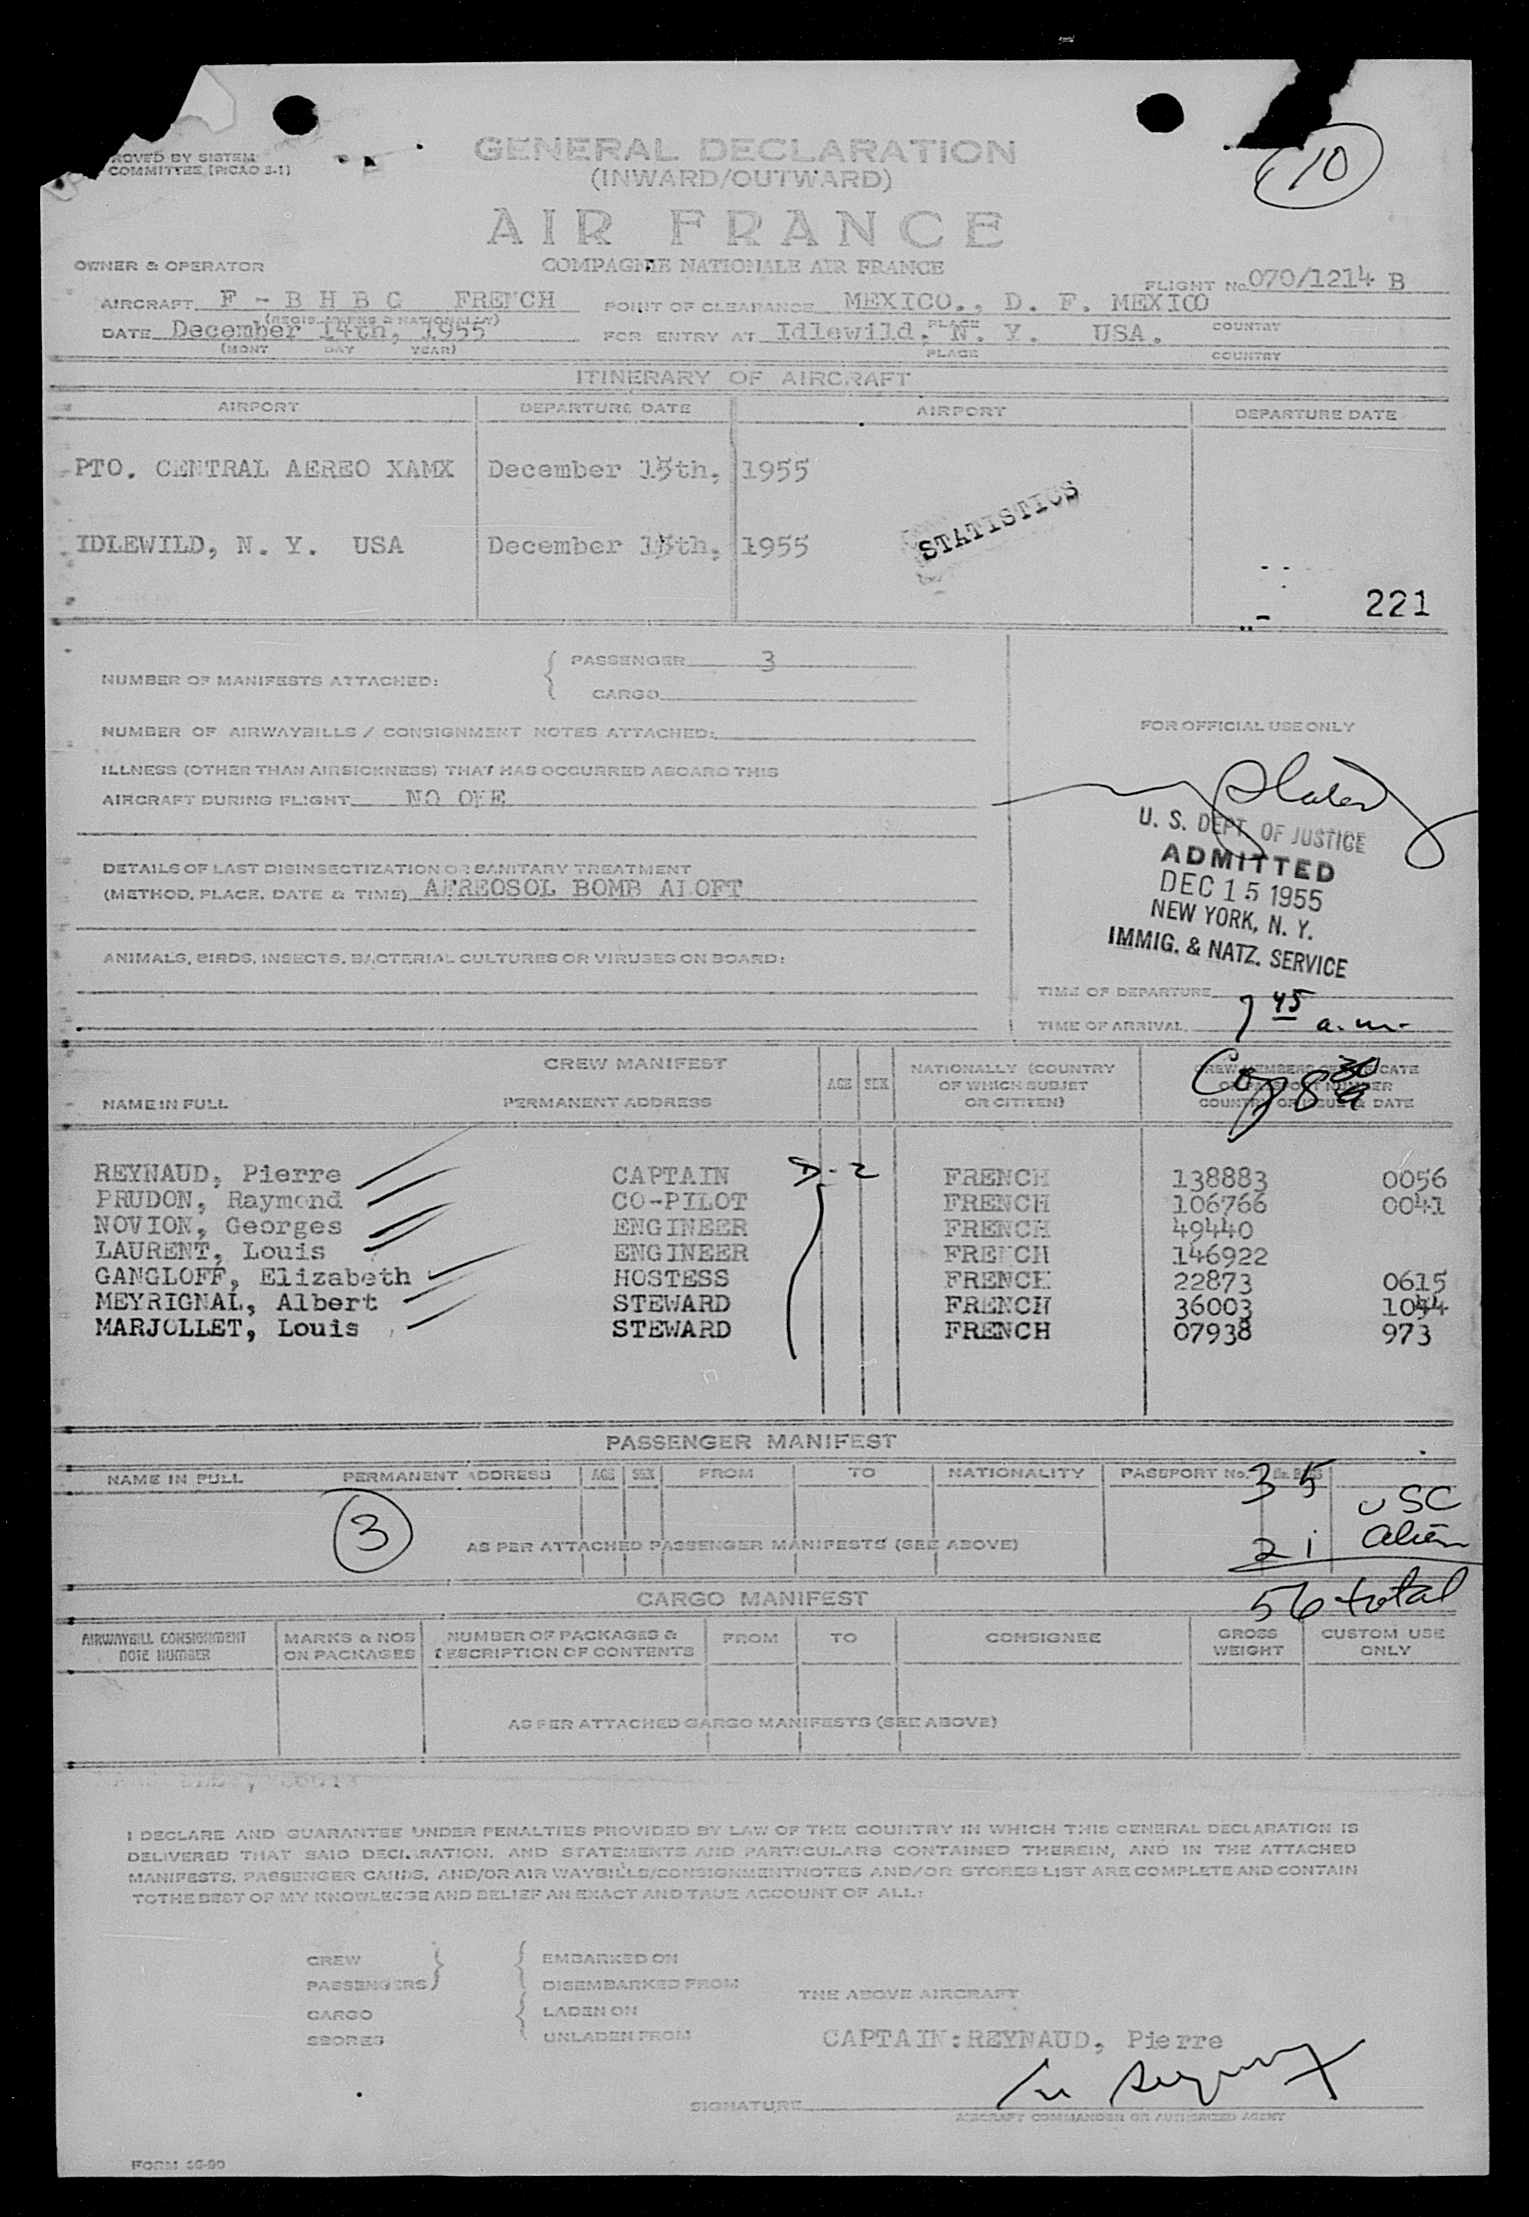 ROVED BY SISTEM
COMMITTEE (PICAO S-1)
GENERAL DECLARATION
(INWARD/OUTWARD)
10
AIR FRANCE
OWNER & OPERATOR
COMPAGNIE NATIONALE AIR FRANCE
FLIGHT No. 070/1214 B
AIRCRAFT F - B H B C FRENCH POINT OF CLEARANCE MEXICO., D. F. MEXICO
(REGIS. MARKS & NATIONALLY) PLACE COUNTRY
DATE December 14th, 1955 FOR ENTRY AT Idlewild, N. Y. USA.
(MONT DAY YEAR) PLACE COUNTRY
ITINERARY OF AIRCRAFT
AIRPORT DEPARTURE DATE AIRPORT DEPARTURE DATE
PTO. CENTRAL AEREO XAMX December 15th, 1955
STATISTICS
IDLEWILD, N. Y. USA December 15th, 1955
221
NUMBER OF MANIFESTS ATTACHED: PASSENGER 3
CARGO
NUMBER OF AIRWAYBILLS / CONSIGNMENT NOTES ATTACHED:
FOR OFFICIAL USE ONLY
ILLNESS (OTHER THAN AIRSICKNESS) THAT HAS OCCURRED ABOARD THIS
AIRCRAFT DURING FLIGHT NO ONE
U. S. DEPT. OF JUSTICE
ADMITTED
DEC 15 1955
NEW YORK, N. Y.
IMMIG. & NATZ. SERVICE
DETAILS OF LAST DISINSECTIZATION OR SANITARY TREATMENT
(METHOD, PLACE, DATE & TIME) AEREOSOL BOMB ALOFT
ANIMALS, BIRDS, INSECTS, BACTERIAL CULTURES OR VIRUSES ON BOARD:
TIME OF DEPARTURE
TIME OF ARRIVAL 7 45 a.m.
CREW MANIFEST
NAME IN FULL PERMANENT ADDRESS AGE SEX NATIONALLY (COUNTRY
OF WHICH SUBJET
OR CITITEN)
CREW MEMBERS CERTIFICATE
OR PASSPORT NUMBER
COUNTRY OF ISSUE & DATE
REYNAUD, Pierre CAPTAIN D-2 FRENCH 138883 0056
PRUDON, Raymond CO-PILOT FRENCH 106766 0041
NOVION, Georges ENGINEER FRENCH 49440
LAURENT, Louis ENGINEER FRENCH 146922
GANGLOFF, Elizabeth HOSTESS FRENCH 22873 0615
MEYRIGNAL, Albert STEWARD FRENCH 36003 1044
MARJOLLET, Louis STEWARD FRENCH 07938 973
PASSENGER MANIFEST
NAME IN FULL PERMANENT ADDRESS AGE SEX FROM TO NATIONALITY PASSPORT No.
35 USC
3
AS PER ATTACHED PASSENGER MANIFESTS (SEE ABOVE)
21 alien
56 total
CARGO MANIFEST
AIRWAYBILL CONSIGNMENT NOTE NUMBER MARKS & NOS ON PACKAGES NUMBER OF PACKAGES & DESCRIPTION OF CONTENTS FROM TO CONSIGNEE GROSS WEIGHT CUSTOM USE ONLY
AS PER ATTACHED CARGO MANIFESTS (SEE ABOVE)
I DECLARE AND GUARANTEE UNDER PENALTIES PROVIDED BY LAW OF THE COUNTRY IN WHICH THIS GENERAL DECLARATION IS
DELIVERED THAT SAID DECLARATION, AND STATEMENTS AND PARTICULARS CONTAINED THEREIN, AND IN THE ATTACHED
MANIFESTS, PASSENGER CARDS, AND/OR AIR WAYBILLS/CONSIGNMENTNOTES AND/OR STORES LIST ARE COMPLETE AND CONTAIN
TOTHE BEST OF MY KNOWLEDGE AND BELIEF AN EXACT AND TRUE ACCOUNT OF ALL:
CREW EMBARKED ON
PASSENGERS DISEMBARKED FROM
THE ABOVE AIRCRAFT
CARGO LADEN ON
SBORES UNLADEN FROM
CAPTAIN: REYNAUD, Pierre
SIGNATURE
AIRCRAFT COMMANDER OR AUTHORIZED AGENT
FORM 56-90